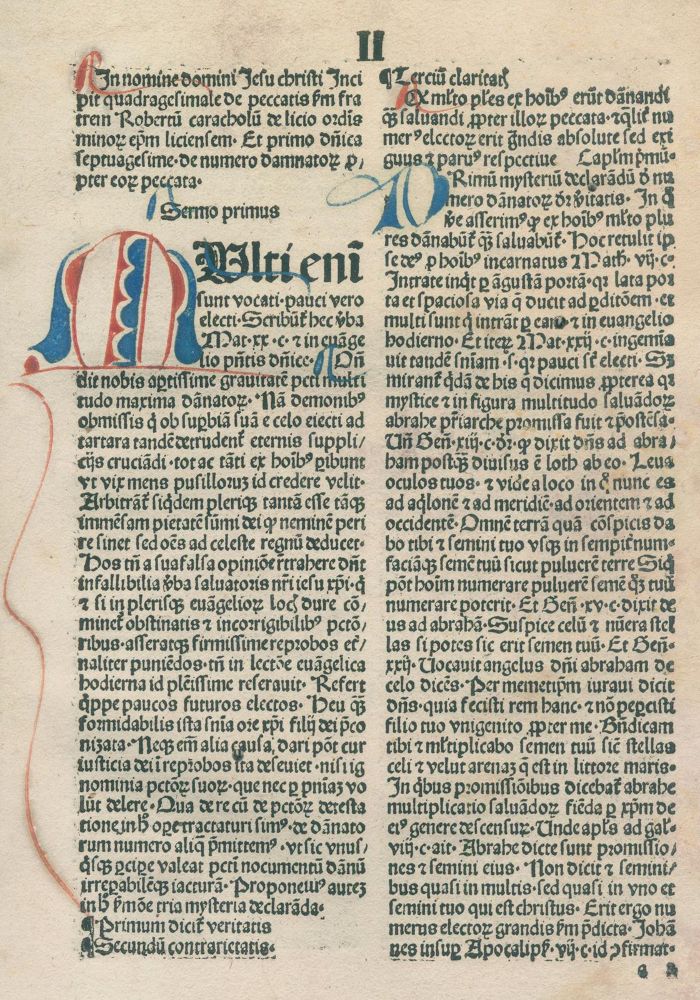 II
In nomine domini Jesu christi Inci
pit quadragesimale de peccatis ẜm fra
trem Robertū caracholū de licio ordīs
minoꝝ ep̄m liciensem. Et primo dn̄ica
septuagesime. de numero damnatoꝝ ꝓ/
pter eoꝝ peccata.
Sermo primus
MUlti enī
sunt vocati. pauci vero
electi. Scribūt͛ hec v̓ba
Mat. xx. c. ⁊ in euāge
lio pn̄tis dn̄ice. Oñ
dit nobis aꝑtissime grauitatē pcti multi
tudo maxima dānatoꝝ. Nā demonibꝰ
obmissis q̄ ob suꝑbiā suā e celo eiecti ad
tartara tandē detrudent͛ eternis suppli/
cijs cruciādi. tot ac tāti ex hoībꝰ ꝑibunt
vt vix mens pusilloꝝ id credere velit.
Arbitrāt͛ siq̄dem pleriqꝫ tantā esse tāqꝫ
immēsam pietatē sūmi dei ꝙ neminē peri
re sinet sed oēs ad celeste regnū deducet.
Hos tn̄ a sua falsa opinione rtrahere dn̄t
infallibilia v̓ba saluatoris nr̄i iesu xp̄i. q̄
⁊ si in plerisqꝫ euāgelioꝝ loc̄ dure cō/
minet͛ obstinatis ⁊ incorrigibilibꝰ pctō/
ribus. asseratqꝫ firmissime reprobos et̄/
naliter puniēdos. tn̄ in lectōe euāgelica
hodierna id plēissime reserauit. Refert
q̄ppe paucos futuros electos. Heu qꝫ
formidabilis ista sn̄ia ore xp̄i filij dei p̄co
nizata. Neqꝫ em̄ alia causa dari pōt cur
iusticia dei ī reprobos ita deseuiet. nisi ig
nominia pctōꝝ suoꝝ. que nec ꝑ pn̄iaꝫ vo
lūt delere. Qua de re cū de pctōꝝ detesta
tione in h̄ oꝑe tractaturi simꝰ. de dānato
rum numero aliq̄ p̄mittemꝰ. vt sic vnus/
q̄sqꝫ ꝑciꝑe valeat pcti nocumētū dānū
irreꝑabilēqꝫ iacturā. Proponetꝰ auteꝫ
in h̄ ẜmōe tria mysteria declarāda.
¶Primum dicit͛ veritatis
¶Secundū contrarietatis.
¶Terciū claritat̄
Ex ml̄to pl̄es ex hoībꝰ erūt dānandi
qꝫ saluandi ꝓpter illoꝝ peccata. ⁊ qlit͛ nu
merꝰ electoꝝ erit grādis absolute sed exi
guus ⁊ paruꝰ respectiue Capl̄m pmū.
PRimū mysteriū declarādū d̓ nu
mero dānatoꝝ dr̄ v̓itatis. In q̄
v̓e asserimꝰ ꝙ ex hoībꝰ ml̄to plu
res dānabūt͛ qꝫ saluabūt͛. Hoc retulit ip
se deꝰ ꝓ hoībꝰ incarnatus Math. vij. c.
Intrate inq̄t ꝑ āgustā portā. qꝛ lata por
ta et spaciosa via q̄ ducit ad ꝑditōem. et
multi sunt q̄ intrāt ꝑ eam. ⁊ in euangelio
hodierno. Et iteꝝ Mat. xxij. c. ingemia
uit tandē sn̄iam. s. qꝛ pauci st̄ electi. Sꝫ
mirant͛ q̄dā de his q̄ dicimus ꝓpterea qꝛ
mystice ⁊ in figura multitudo saluādoꝝ
abrahe pr̄iarche promissa fuit ⁊ p̄ostēsa.
Un̄ Gen̄. xiij. c. dr̄. ꝙ dixit dn̄s ad abra/
ham postqꝫ diuisus ē loth ab eo. Leua
oculos tuos. ⁊ vide a loco in q̄ nunc es
ad aq̄lonē ⁊ ad meridiē. ad orientem ⁊ ad
occidentē. Omnē terrā quā cōspicis da
bo tibi ⁊ semini tuo vsqꝫ in sempit̓num.
faciāqꝫ semē tuū sicut puluerē terre Siq̄
pōt hoīm numerare puluerē semē qꝫ tuū
numerare poterit. Et Gen̄. xv. c. dixit de
us ad abrahā. Suspice celū ⁊ nūera stel
las si potes sic erit semen tuū. Et Gen̄.
xxij. Uocauit angelus dn̄i abraham de
celo dicēs. Per memetip̄m iuraui dicit
dn̄s. quia fecisti rem hanc. ⁊ nō peꝑcisti
filio tuo vnigenito ꝓpter me. Bn̄dicam
tibi ⁊ ml̄tiplicabo semen tuū sic̄ stellas
celi ⁊ velut arenaꝫ q̄ est in littore maris.
In q̄bus promissiōibus dicebat͛ abrahe
multiplicatio saluādoꝝ fiēda ꝑ xp̄m de
eiꝰ genere descensuꝝ. Unde apl̄s ad gal̓.
viij. c. ait. Abrahe dicte sunt promissio/
nes ⁊ semini eius. Non dicit ⁊ semini/
bus quasi in multis. sed quasi in vno et
semini tuo qui est christus. Erit ergo nu
merus electoꝝ grandis ẜm p̄dicta. Johā
nes insuꝑ Apocalip̄. vij. c. id ꝯfirmat.